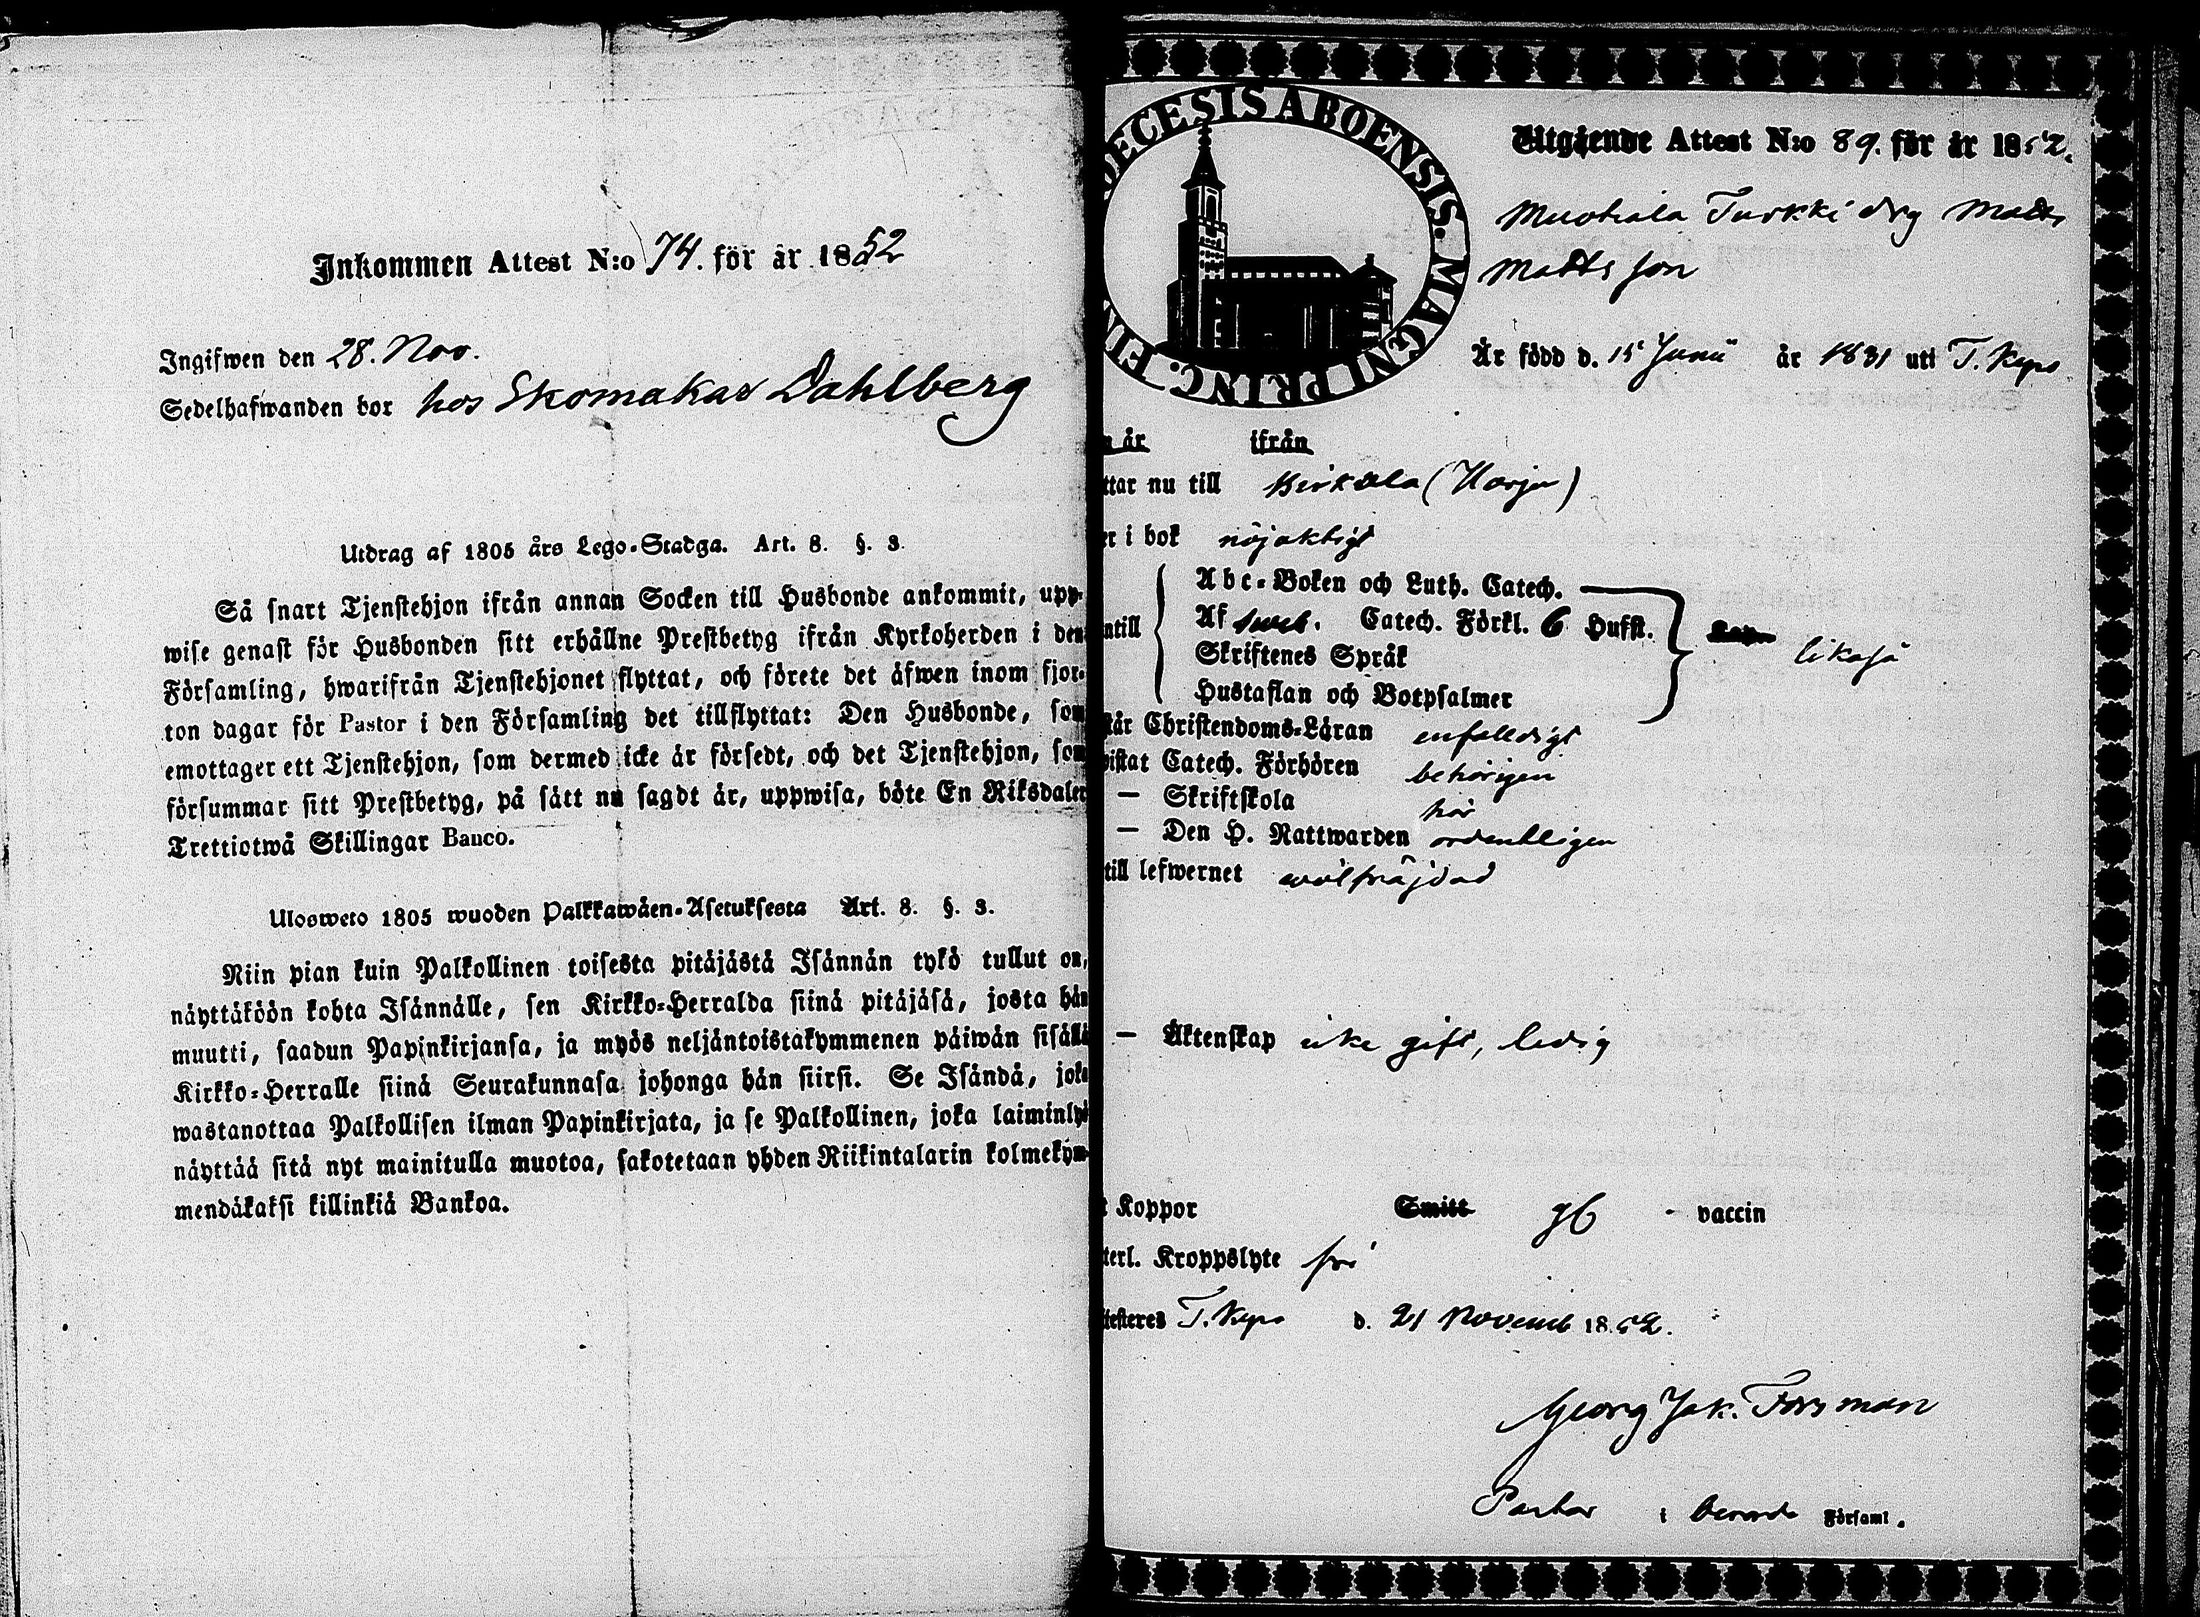 Inkommen Attest N:o 74. för år 1852
Ingifwen den 28. Nov.
Sedelhafwanden bor hos Skomakar Dahlberg
Utdrag af 1805 års Lego-Stadga. Art. 8. §. 3.
Så snart Tjenstehjon ifrån annan Socken till Husbonde ankommit, upp-
wise genast för Husbonden sitt erhållne Prestbetyg ifrån Kyrkoherden i den
Församling, hwarifrån Tjenstehjonet flyttat, och förete det äfwen inom fjor-
ton dagar för Pastor i den Församling det tillflyttat: Den Husbonde, som
emottager ett Tjenstehjon, som dermed icke är försedt, och det Tjenstehjon, som
försummar sitt Prestbetyg, på sätt nu sagdt är, uppwisa, böte En Riksdaler
Trettiotwå Skillingar Banco.
Ulosweto 1805 wuoden Palkkawäen-Asetuksesta Art. 8. §. 3.
Niin pian kuin Palkollinen toisesta pitäjästä Isännän tykö tullut on,
näyttäköön kohta Isännälle, sen Kirkko-Herralda siinä pitäjäsä, josta hän
muutti, saadun Papinkirjansa, ja myös neljäntoistakymmenen päiwän sisällä
Kirkko-Herralle siinä Seurakunnasa johonga hän siirsi. Se Isändä, joka
wastanottaa Palkollisen ilman Papinkirjata, ja se Palkollinen, joka laiminlyö
näyttää sitä nyt mainitulla muotoa, sakotetaan yhden Riikintalarin kolmekym-
mendäkaksi killinkiä Bankoa.
DECESIS ABOENSIS. MAGNI PRINC. FIN
Utgående Attest N:o 89. för år 1852.
Muotiala Turkki drg Matts
Mattsson
Är född d. 15 Junii år 1831 uti T. Kyro
n år ifrån
ttar nu till Birkala (Harju)
er i bok nöjaktigt
Abc-Boken och Luth. Catech.
ntill Af Sweb. Catech. Förkl. 6 Hufst. likaså
Skriftenes Språk
Hustaflan och Botpsalmer
står Christendoms-Läran enfaldigt
wistat Catech. Förhören behörigen
— Skriftskola här
— Den H. Nattwarden ordentligen
till lefwernet wälfräjdad
— Äktenskap icke gift, ledig
t Koppor Smitt gb vaccin
terl. Kroppslyte fri
ttesteres T. Kyro d. 21 Novemb 1852.
Georg Jak. Forsman
Pastor i Församl.